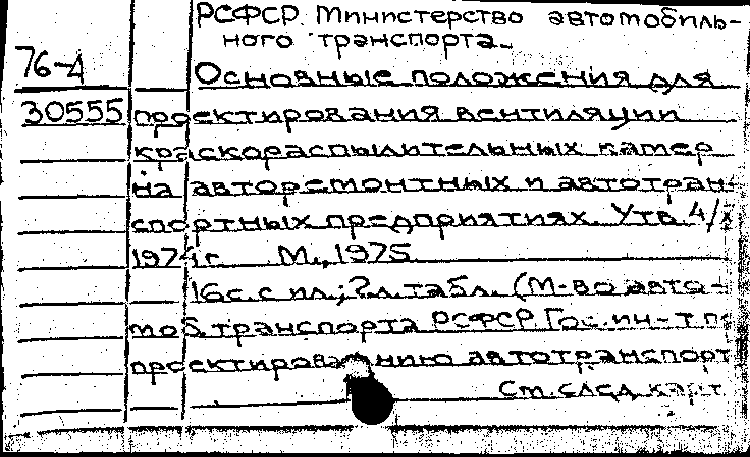 РСФСР. Министерство автомобиль-
ного транспорта.
76-4
Основные положения для
30555 проектирования вентиляции
краскораспылительных камер
на авторемонтных и автотран-
спортных предприятиях. Утв. 4/X
1974 г. М., 1975
16 с. с ил.; л. табл. (М-во авто-
моб. транспорта РСФСР. Гос. ин-т по
проектированию автотранспорт
См. след. карт.